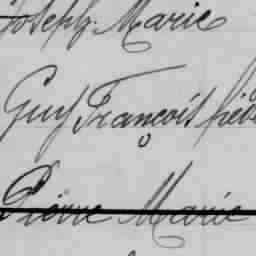 Joseph Marie
Guy François
Pierre Marie